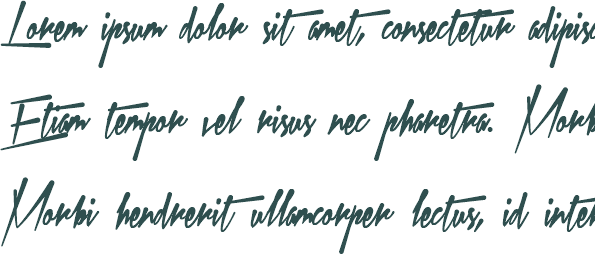 Lorem ipsum dolor sit amet, consectetur adipisc
Etiam tempor vel risus nec pharetra. Morb
Morbi hendrerit ullamcorper lectus, id inter